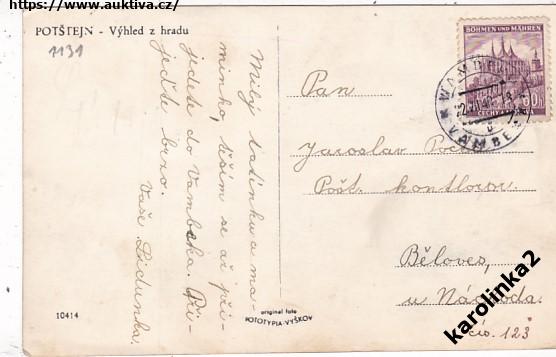 https://www.auktiva.cz/
POTŠTEJN - Výhled z hradu
1131
Milý tatínku a ma-
minko, těším se až při-
jedete do Vamberka. Při-
jeďte brzo.
Vaše Lidunka.
10414
original foto
FOTOTYPIA-VYŠKOV
BÖHMEN UND MÄHREN
60h
ČECHY A MORAVA
WAMBERG
VAMBERK
Pan
Jaroslav
Pošt. kontlorov.
Běloves,
u Náchoda
čís. 123
karolinka2